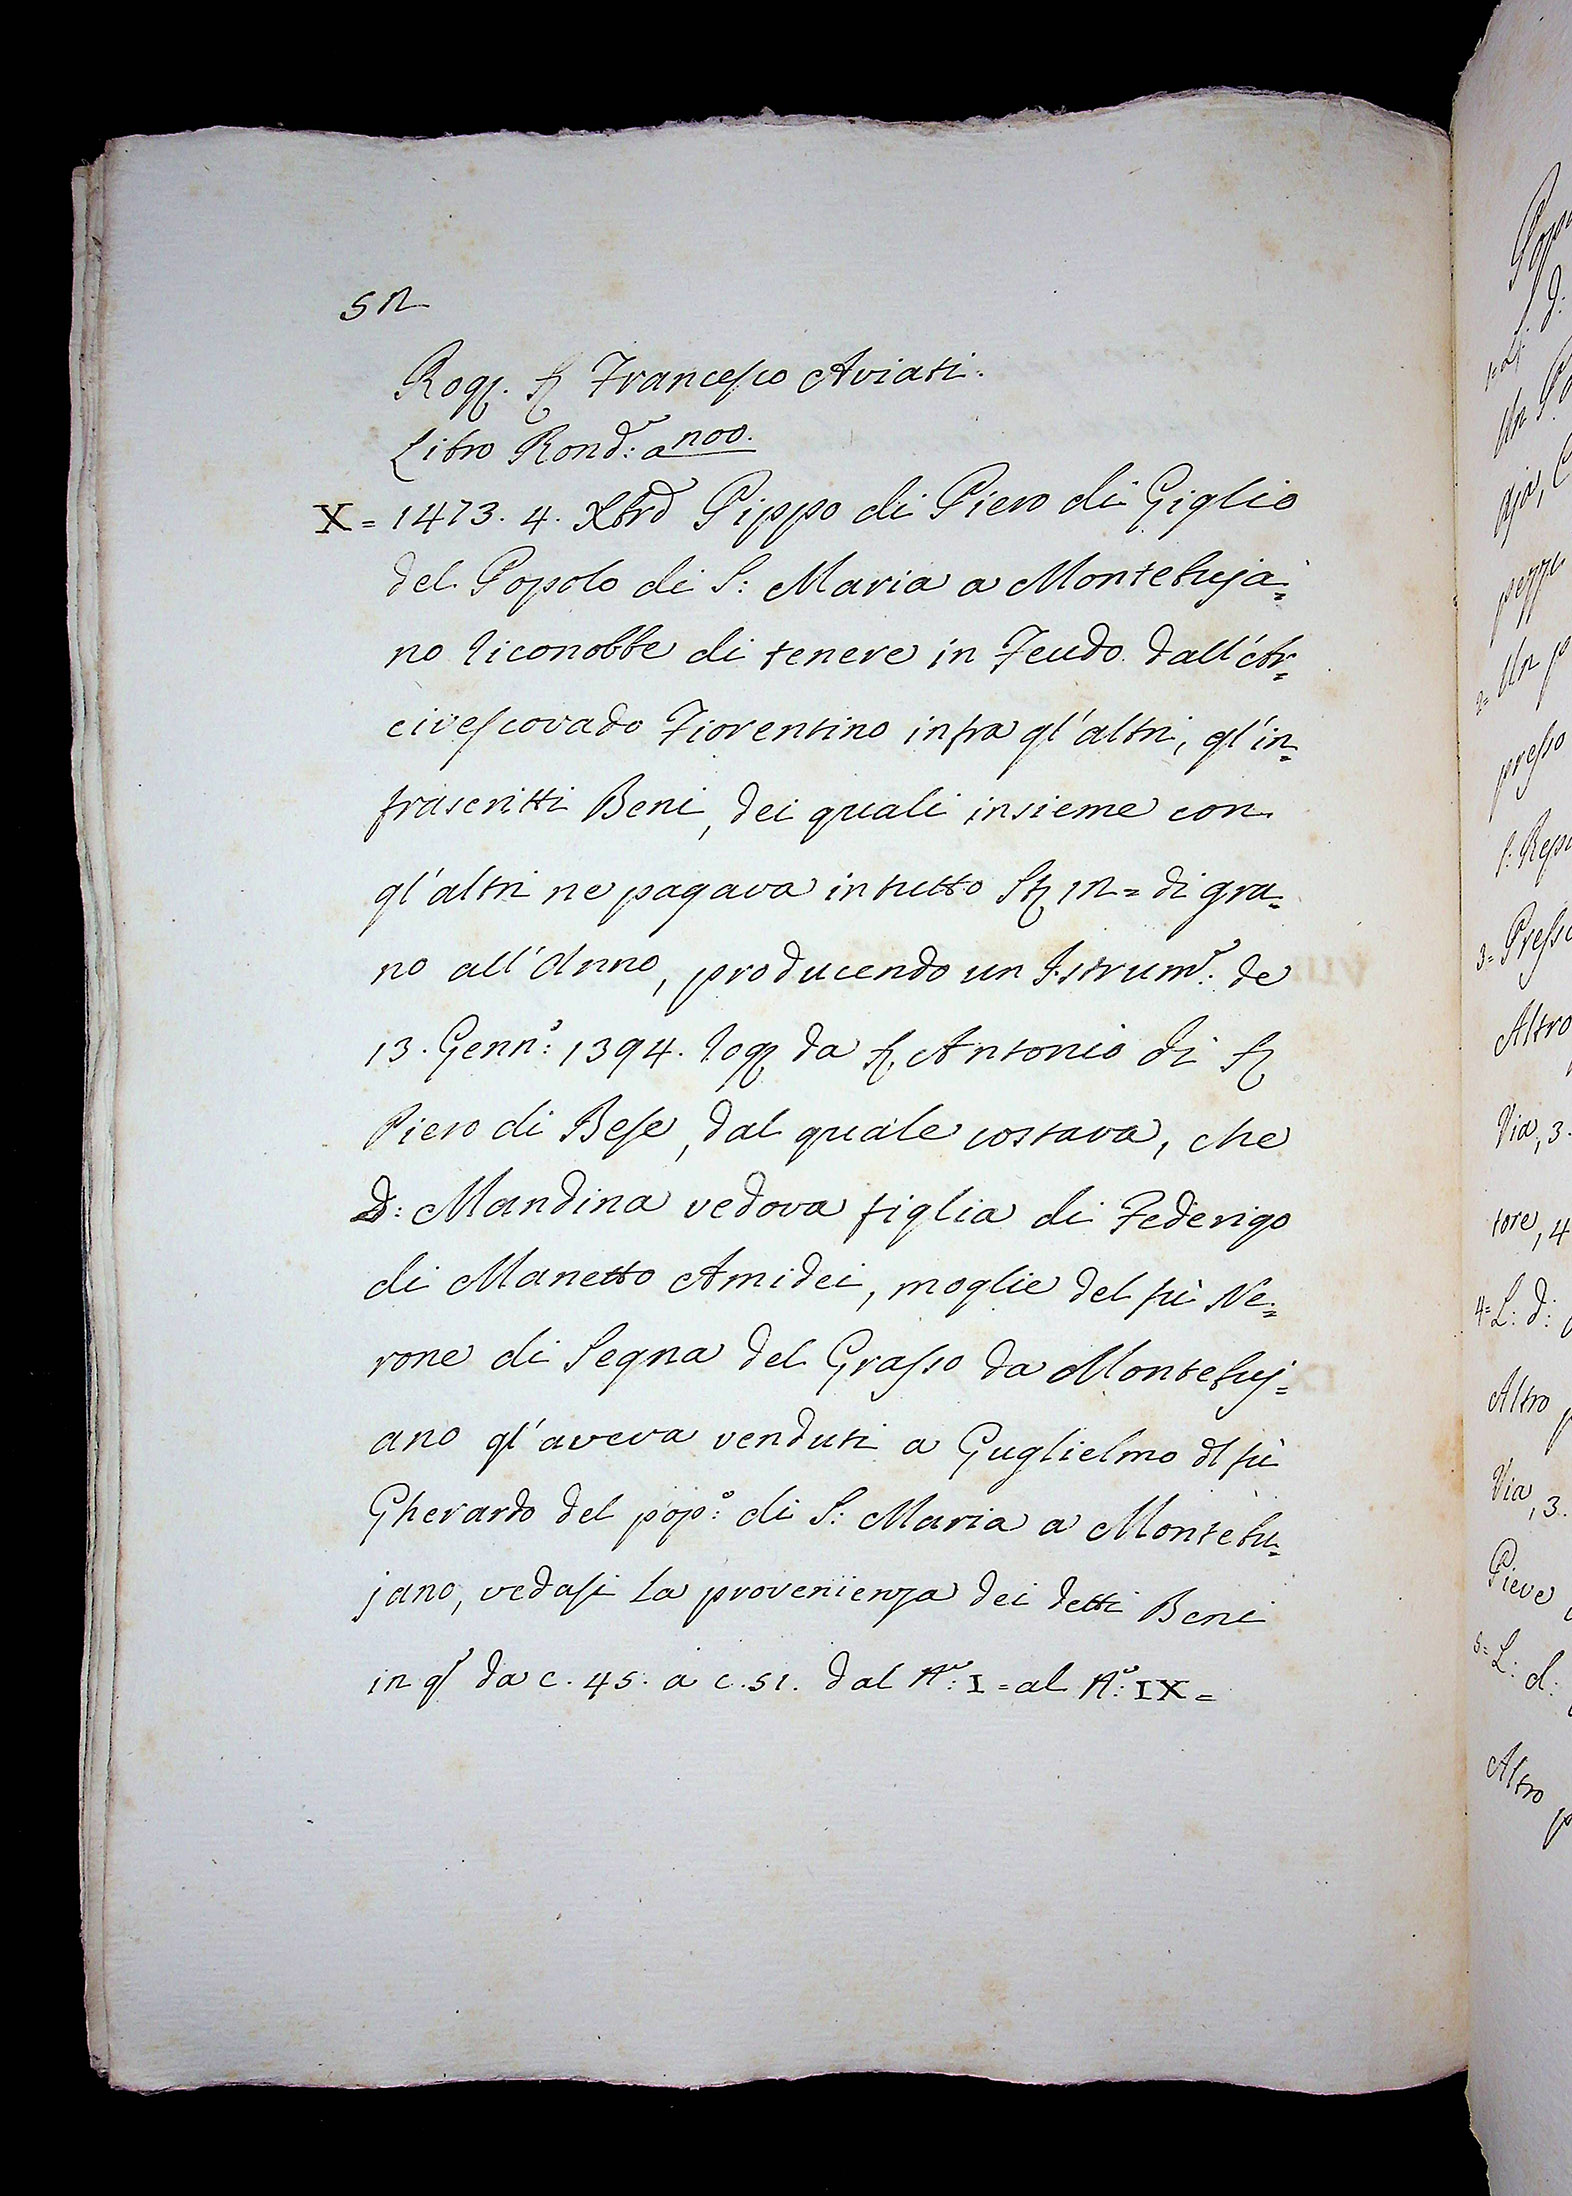 52
Rog. Sr Francesco Aviati.
Libro Rond.e a 200.
X= 1473. 4. Xbre Pippo di Piero di Giglio
del Popolo di S: Maria a Montebuja=
no riconobbe di tenere in Feudo dall'Ar=
civescovado Fiorentino infra gl'altri, gl'in=
frascritti Beni, dei quali insieme con
gl'altri ne pagava in tutto St. 12= di gra=
no all'Anno, producendo un Istrum.o de
13. Genn.o: 1394. rog. da Sr Antonio di Sr
Piero di Bese, dal quale costava, che
D: Mandina vedova figlia di Federigo
di Manetto Amidei, moglie del fù Ne=
rone di Segna del Grasso da Montebuj=
ano gl'aveva venduti a Guglielmo dl fù
Gherardo del pop.o: di S: Maria a Montebu=
jano, vedasi la provenienza dei detti Beni
in q.o da c. 45. a c. 51. dal N.o: I= al N.o: IX=
1= L: d:
Un
2= Un p
presso
3= Presso
Altro
Via, 3.
tore, 4
4= L: d:
Altro p
Via, 3.
Pieve
5= L: d:
Altro p